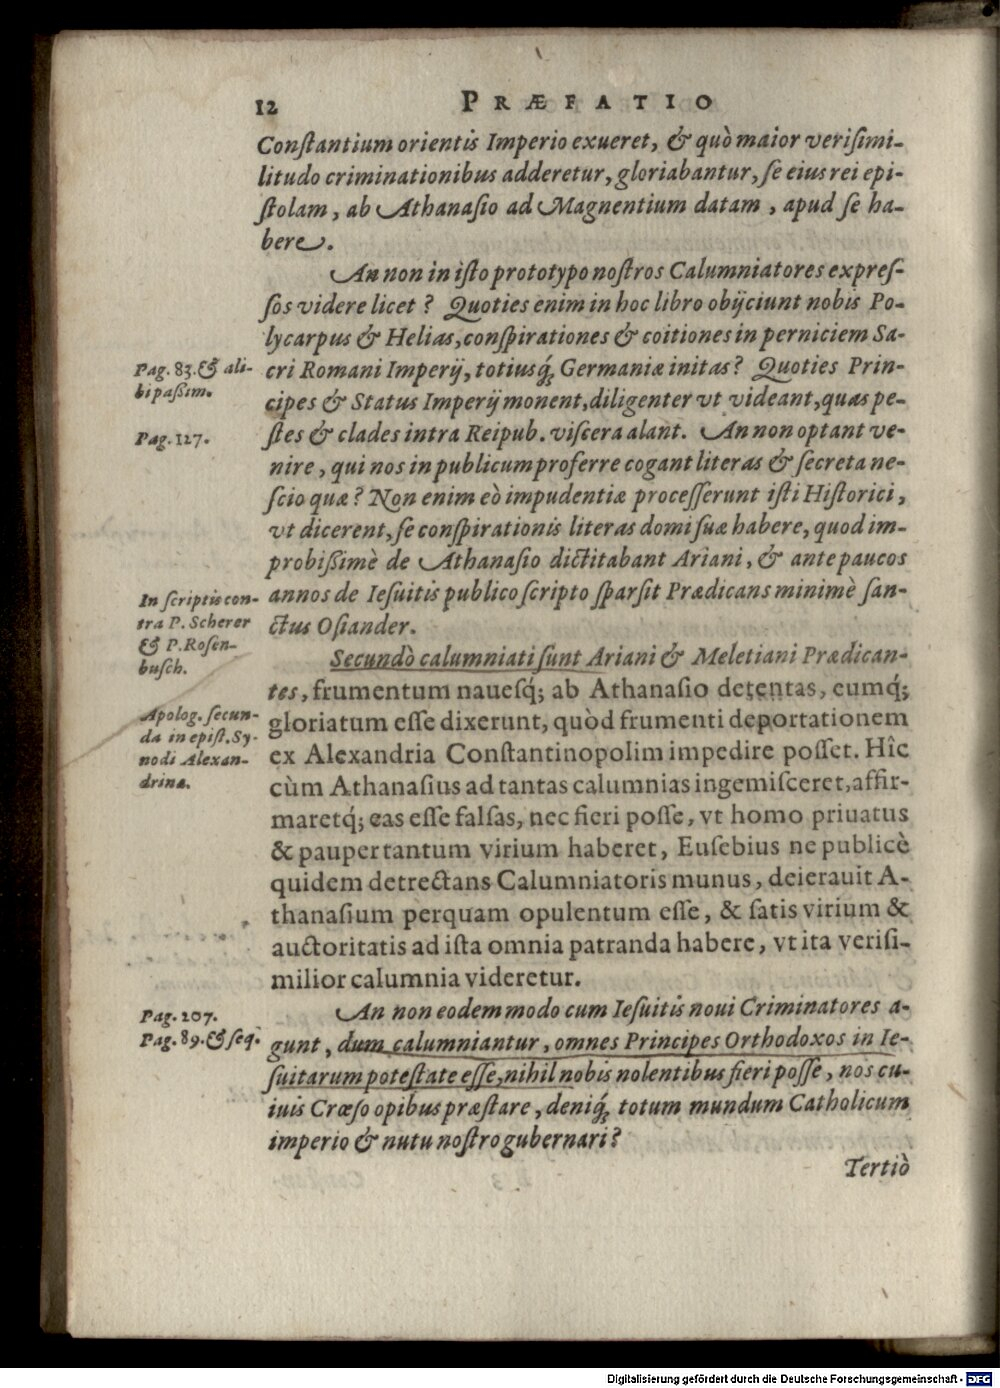 12 PRÆFATIO
Conſtantium orientis Imperio exueret, & quò maior veriſimi-
litudo criminationibus adderetur, gloriabantur, ſe eius rei epi-
ſtolam, ab Athanaſio ad Magnentium datam, apud ſe ha-
bere.
An non in iſto prototypo noſtros Calumniatores expreſ-
ſos videre licet? Quoties enim in hoc libro obijciunt nobis Po-
lycarpus & Helias, conſpirationes & coitiones in perniciem Sa-
Pag. 83. & ali-
bi paßim.
cri Romani Imperij, totiusq́; Germaniæ initas? Quoties Prin-
cipes & Status Imperij monent, diligenter vt videant, quas pe-
Pag. 127.
ſtes & clades intra Reipub. viſcera alant. An non optant ve-
nire, qui nos in publicum proferre cogant literas & ſecreta ne-
ſcio quæ? Non enim eò impudentiæ proceſſerunt iſti Hiſtorici,
vt dicerent, ſe conſpirationis literas domi ſuæ habere, quod im-
probißimè de Athanaſio dictitabant Ariani, & ante paucos
In ſcriptis con-
tra P. Scherer
& P. Roſen-
buſch.
annos de Ieſuitis publico ſcripto ſparſit Prædicans minimè ſan-
ctus Oſiander.
Secundò calumniati ſunt Ariani & Meletiani Prædican-
tes, frumentum naueſq́; ab Athanaſio detentas, eumq́;
Apolog. ſecun-
da in epiſt. Sy-
nodi Alexan-
drinæ.
gloriatum eſſe dixerunt, quòd frumenti deportationem
ex Alexandria Conſtantinopolim impedire poſſet. Hîc
cùm Athanaſius ad tantas calumnias ingemiſceret, affir-
maretq́; eas eſſe falſas, nec fieri poſſe, vt homo priuatus
& pauper tantum virium haberet, Euſebius ne publicè
quidem detrectans Calumniatoris munus, deierauit A-
thanaſium perquam opulentum eſſe, & ſatis virium &
auctoritatis ad iſta omnia patranda habere, vt ita veriſi-
milior calumnia videretur.
Pag. 207.
Pag. 89. & ſeq́.
An non eodem modo cum Ieſuitis noui Criminatores a-
gunt, dum calumniantur, omnes Principes Orthodoxos in Ie-
ſuitarum poteſtate eſſe, nihil nobis nolentibus fieri poſſe, nos cu-
iuis Crœſo opibus præſtare, deniq́; totum mundum Catholicum
imperio & nutu noſtro gubernari?
Tertiò
Digitalisierung gefördert durch die Deutsche Forschungsgemeinschaft - DFG